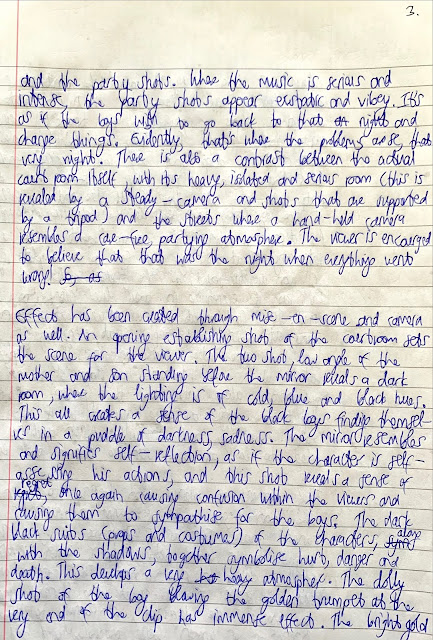 3.
and the party shots. Where the music is serious and
intense, the party shots appear ecstatic and vibey. It's
as if the boys wish to go back to that night and
change things. Evidently, that's where the problems arose, that
very night. There is also a contrast between the actual
court room itself, with its heavy, isolated and serious room (this is
revealed by a steady-camera and shots that are supported
by a tripod) and the streets where a hand-held camera
resembles a care-free, partying atmosphere. The viewer is encouraged
to believe that that was the night when everything went
wrong!
Effects has been created through mise-en-scene and camera
as well. An opening establishing shot of the courtroom sets
the scene for the viewer. The two shot, low angle of the
mother and son standing before the mirror reveals a dark
room, where the lighting is of cold, blue and black hues.
This all creates a sense of the black boys finding themsel-
ves in a puddle of darkness, sadness. The mirror resembles
and signifies self-reflection, as if the character is self-
assessing his actions, and this shot reveals a sense of
regret, once again causing confusion within the viewers and
causing them to sympathise for the boys. The dark
black suits (props and costumes) of the characters, along
with the shadows, together symbolise hurt, danger and
death. This develops a very heavy atmospher. The dolly
shot of the boy playing the golden trumpet at the
very end of the clip has immense effect. The bright gold